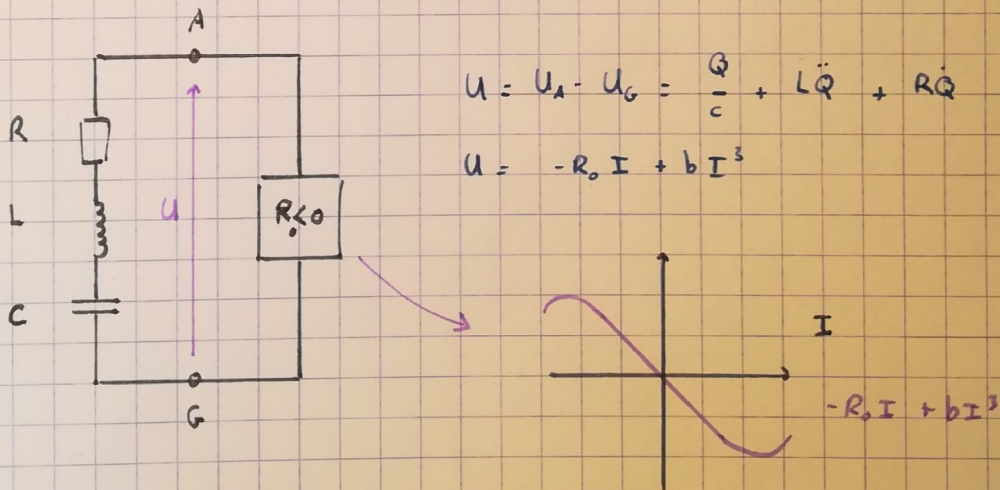 A
R
L
C
U
R₀<0
G
U = U_A - U_G = Q/c + LQ̈ + RQ̇
U = -R₀ I + b I³
I
-R₀ I + bI³